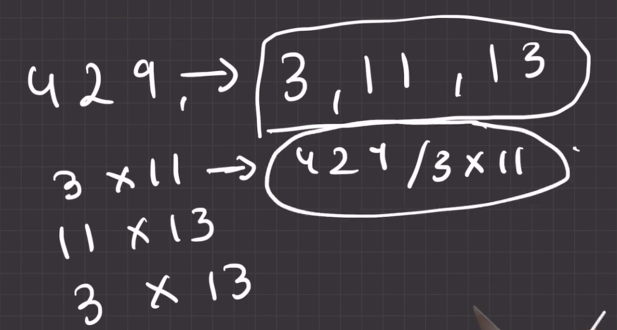 429, → 3, 11, 13
3 × 11 → 429/3 × 11
11 × 13
3 × 13